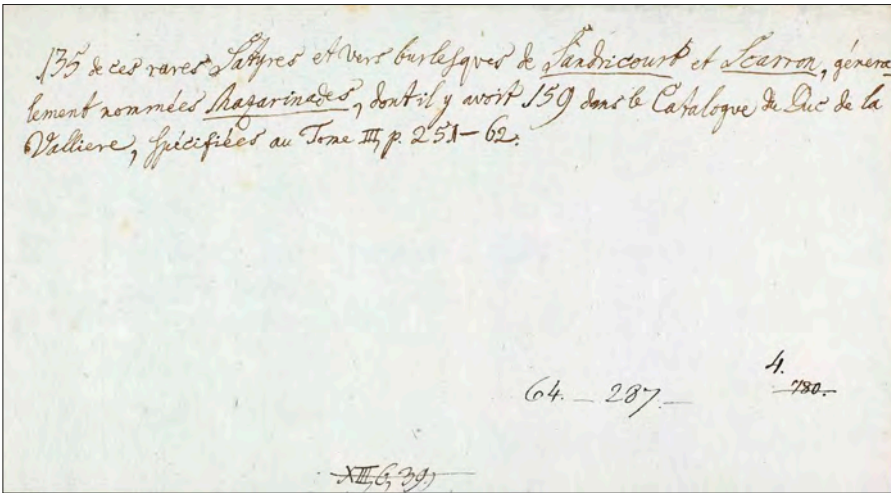 135 de ces rares Satyres et vers burlesques de Sandricourt et Scarron, généra
lement nommées Mazarinades, dont il y avoit 159 dans le Catalogue du Duc de la
Valliere, spécifiées au Tome III, p. 251-62.
4.
64. - 287. - 780.-
XIII, 6, 39.)